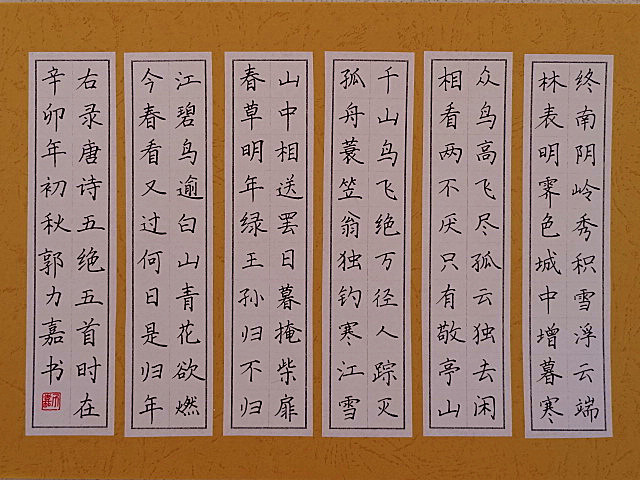 终南阴岭秀积雪浮云端
林表明霁色城中增暮寒
众鸟高飞尽孤云独去闲
相看两不厌只有敬亭山
千山鸟飞绝万径人踪灭
孤舟蓑笠翁独钓寒江雪
山中相送罢日暮掩柴扉
春草明年绿王孙归不归
江碧鸟逾白山青花欲燃
今春看又过何日是归年
右录唐诗五绝五首时在
辛卯年初秋郭力嘉书